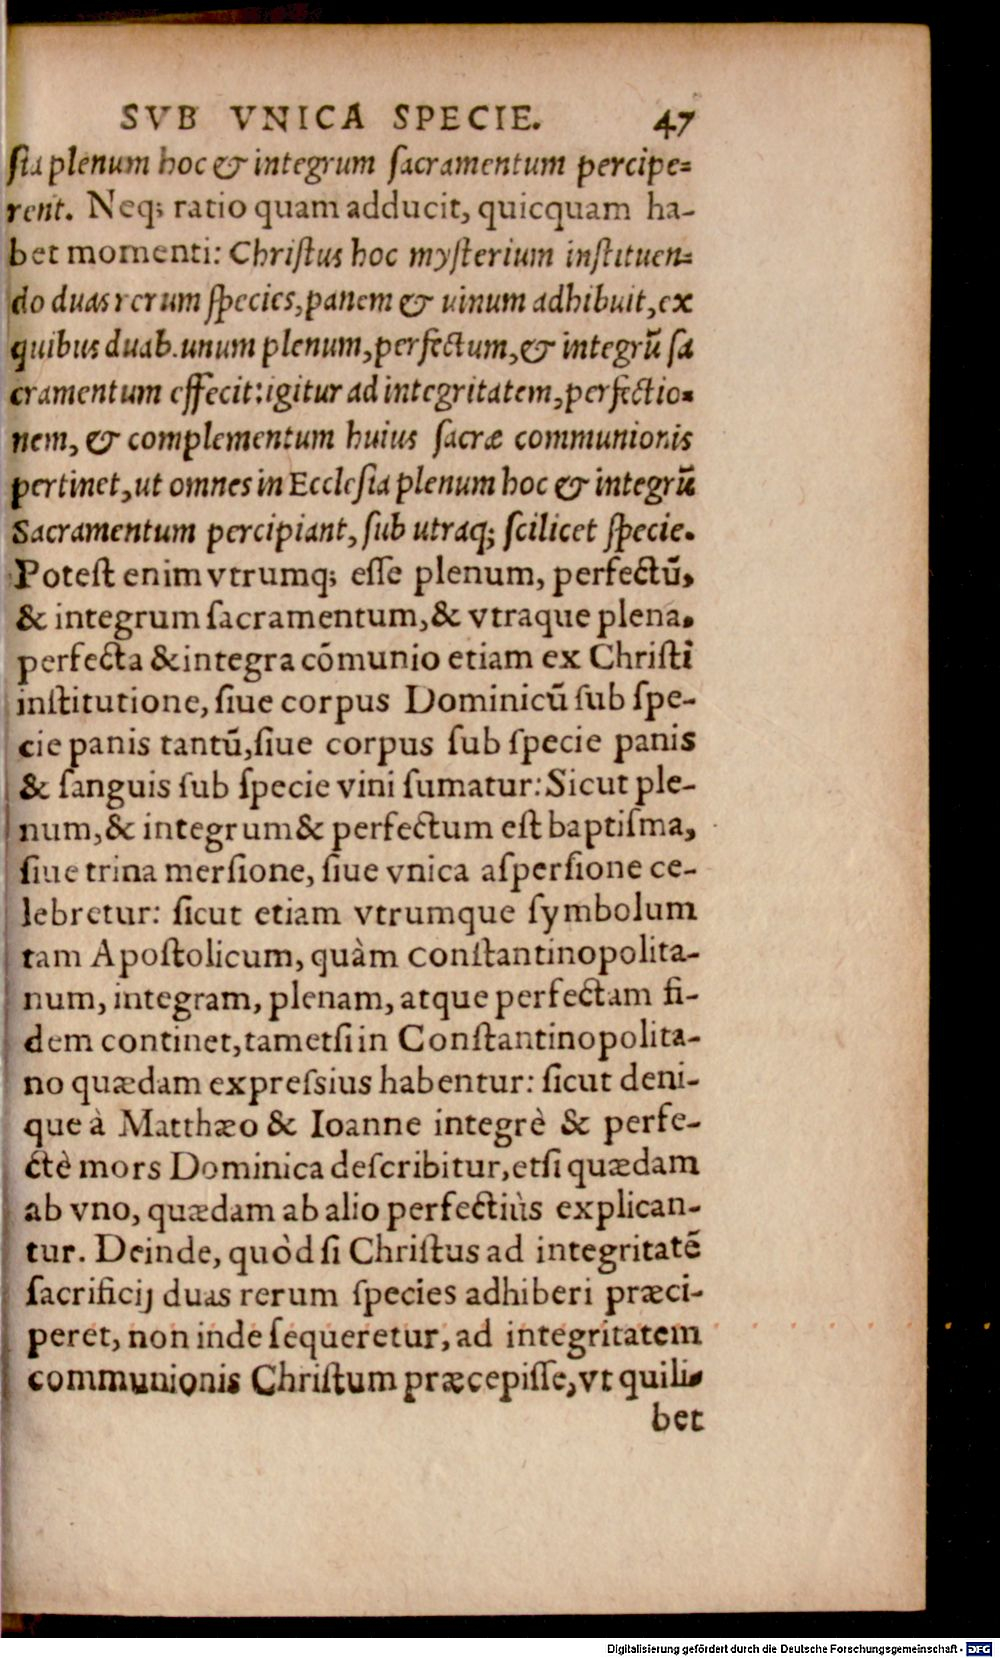 SVB VNICA SPECIE. 47
ſia plenum hoc & integrum ſacramentum percipe=
rent. Neq; ratio quam adducit, quicquam ha-
bet momenti: Chriſtus hoc myſterium inſtituen=
do duas rerum ſpecies, panem & uinum adhibuit, ex
quibus duab. unum plenum, perfectum, & integrũ ſa
cramentum effecit: igitur ad integritatem, perfectio=
nem, & complementum huius ſacræ communionis
pertinet, ut omnes in Eccleſia plenum hoc & integrũ
Sacramentum percipiant, ſub utraq; ſcilicet ſpecie.
Poteſt enim vtrumq; eſſe plenum, perfectũ,
& integrum ſacramentum, & vtraque plena,
perfecta & integra cõmunio etiam ex Chriſti
inſtitutione, ſiue corpus Dominicũ ſub ſpe-
cie panis tantũ, ſiue corpus ſub ſpecie panis
& ſanguis ſub ſpecie vini ſumatur: Sicut ple-
num, & integrum & perfectum eſt baptiſma,
ſiue trina merſione, ſiue vnica aſperſione ce-
lebretur: ſicut etiam vtrumque ſymbolum
tam Apoſtolicum, quàm conſtantinopolita-
num, integram, plenam, atque perfectam fi-
dem continet, tametſi in Conſtantinopolita-
no quædam expreſsius habentur: ſicut deni-
que à Matthæo & Ioanne integrè & perfe-
ctè mors Dominica deſcribitur, etſi quædam
ab vno, quædam ab alio perfectiùs explican-
tur. Deinde, quòd ſi Chriſtus ad integritatẽ
ſacrificij duas rerum ſpecies adhiberi præci-
peret, non inde ſequeretur, ad integritatem
communionis Chriſtum præcepiſſe, vt quili-
bet
Digitalisierung gefördert durch die Deutsche Forschungsgemeinschaft - DFG